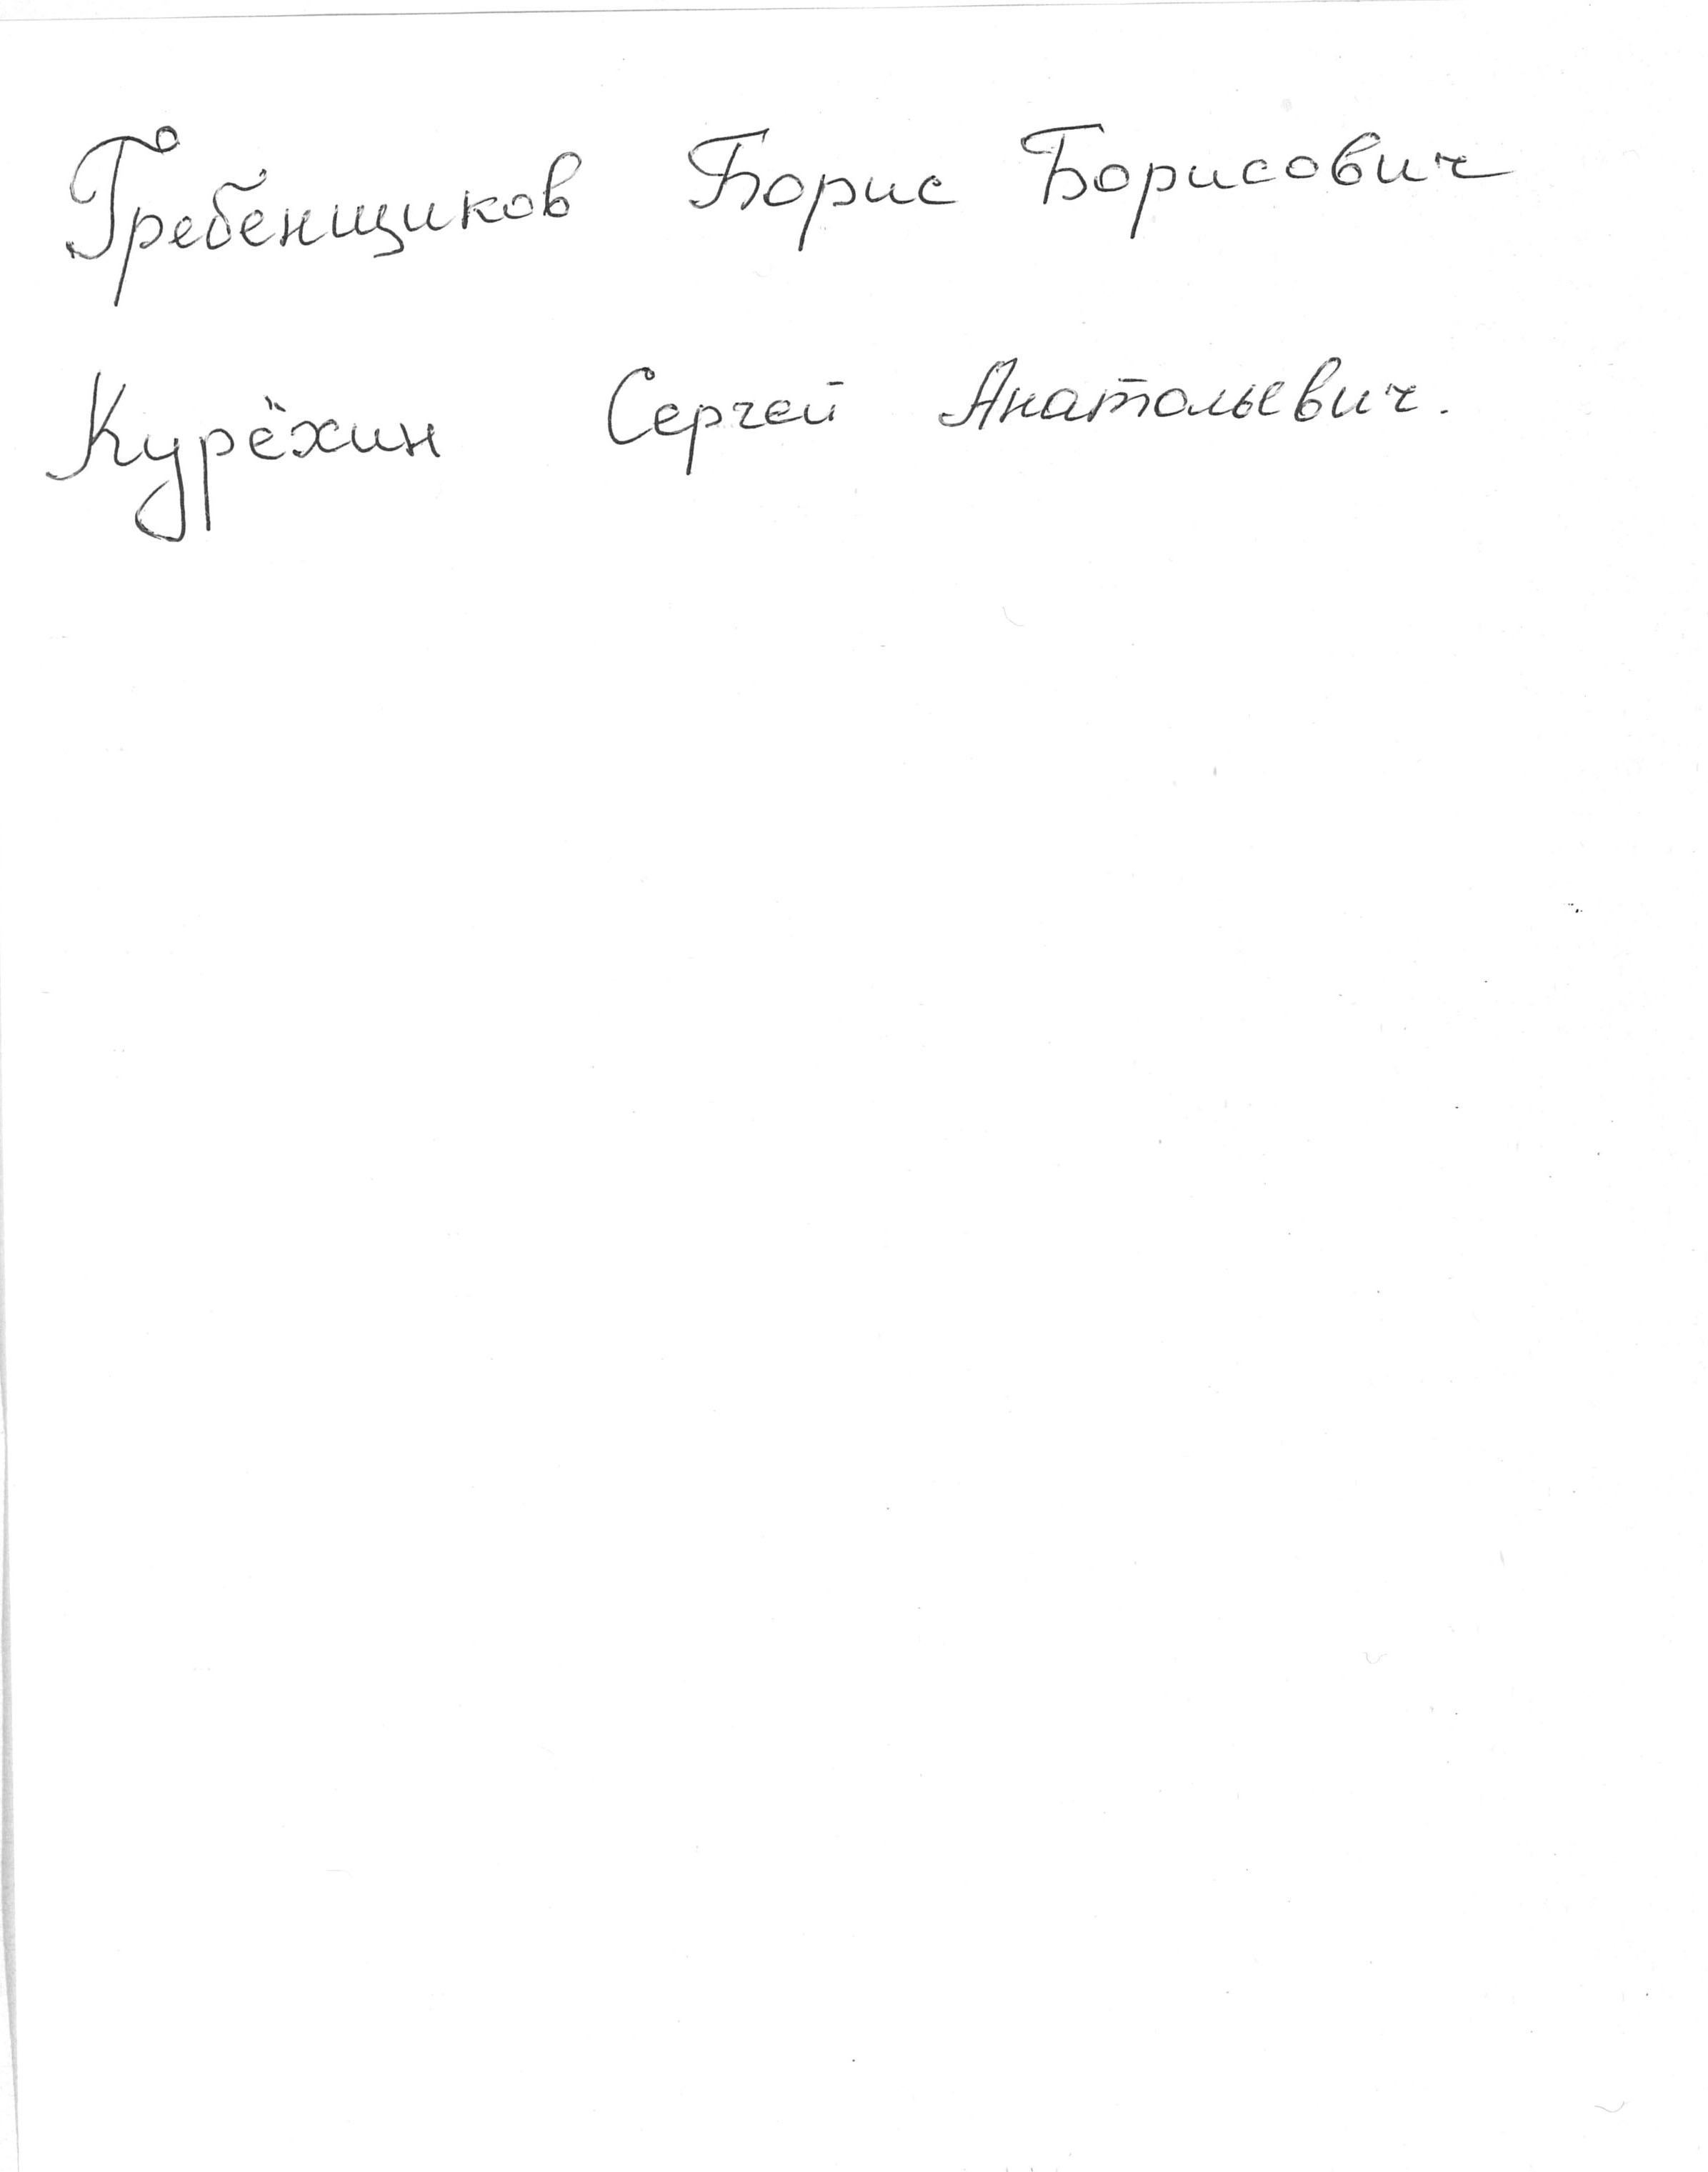 Гребенщиков Борис Борисович
Курёхин Сергей Анатольевич.